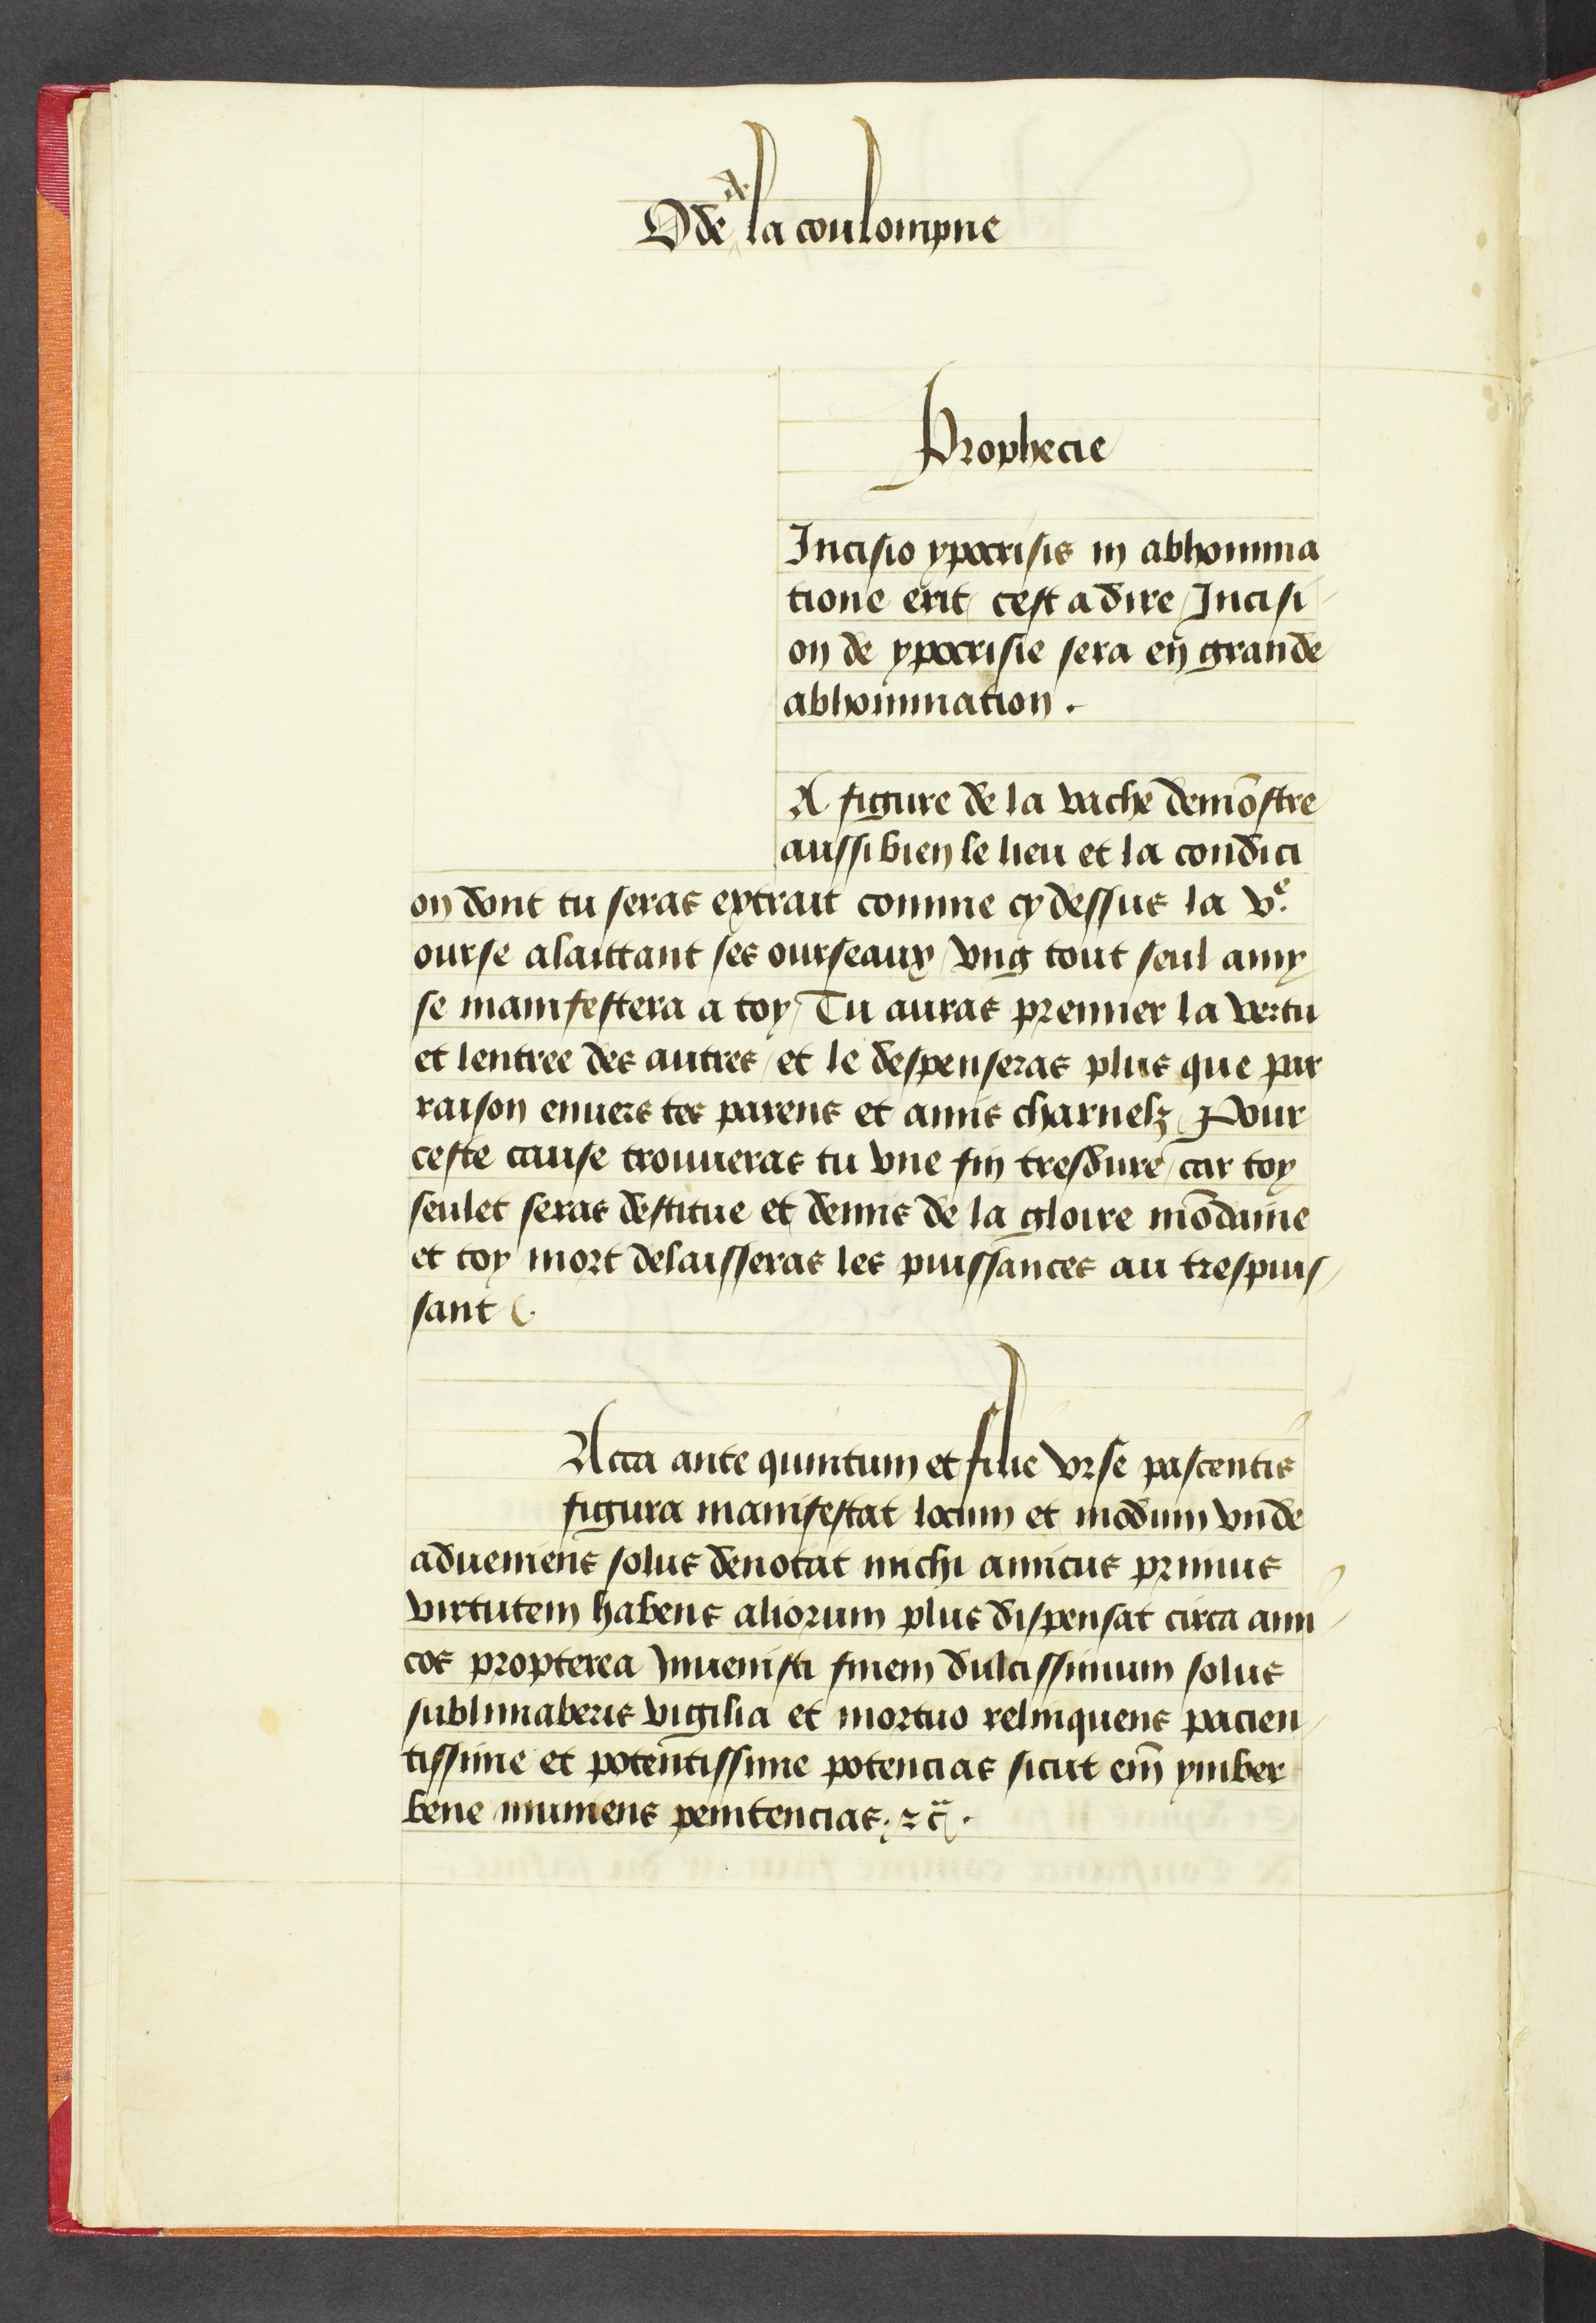 Ode de la coulompne
Prophecie
Incisio ypocrisis in abhomina
tione erit / cest a dire / Incisi
on de ypocrisie sera en grande
abhomination .
A figure de la vache demõstre
aussi bien le lieu et la condici
on dont tu seras extrait comme cy dessus la vᵉ.
ourse alaittant ses ourseaux / vng tout seul amy
se manifestera a toy / Tu auras premier la vertu
et lentree des autres / et le despenseras plus que par
raison enuers tes parens et amis charnelz / Pour
ceste cause trouueras tu vne fin tresdure / car toy
seulet seras destitue et demis de la gloire mõdaine
et toy mort delaisseras les puissances au trespuis /
sant (.
Acta ante quintum et filie vrse pascentis
figura manifestat locum et modum vnde
adueniens solus denotat michi amicus primus
virtutem habens aliorum plus dispensat circa ami
cos propterea Inuenisti finem dulcissimum solus
sublimaberis vigilia et mortuo relinquens pacien /
tissime et potentissime potencias sicut em̃ ymber
bene muniens penitencias . ⁊ c̃ .